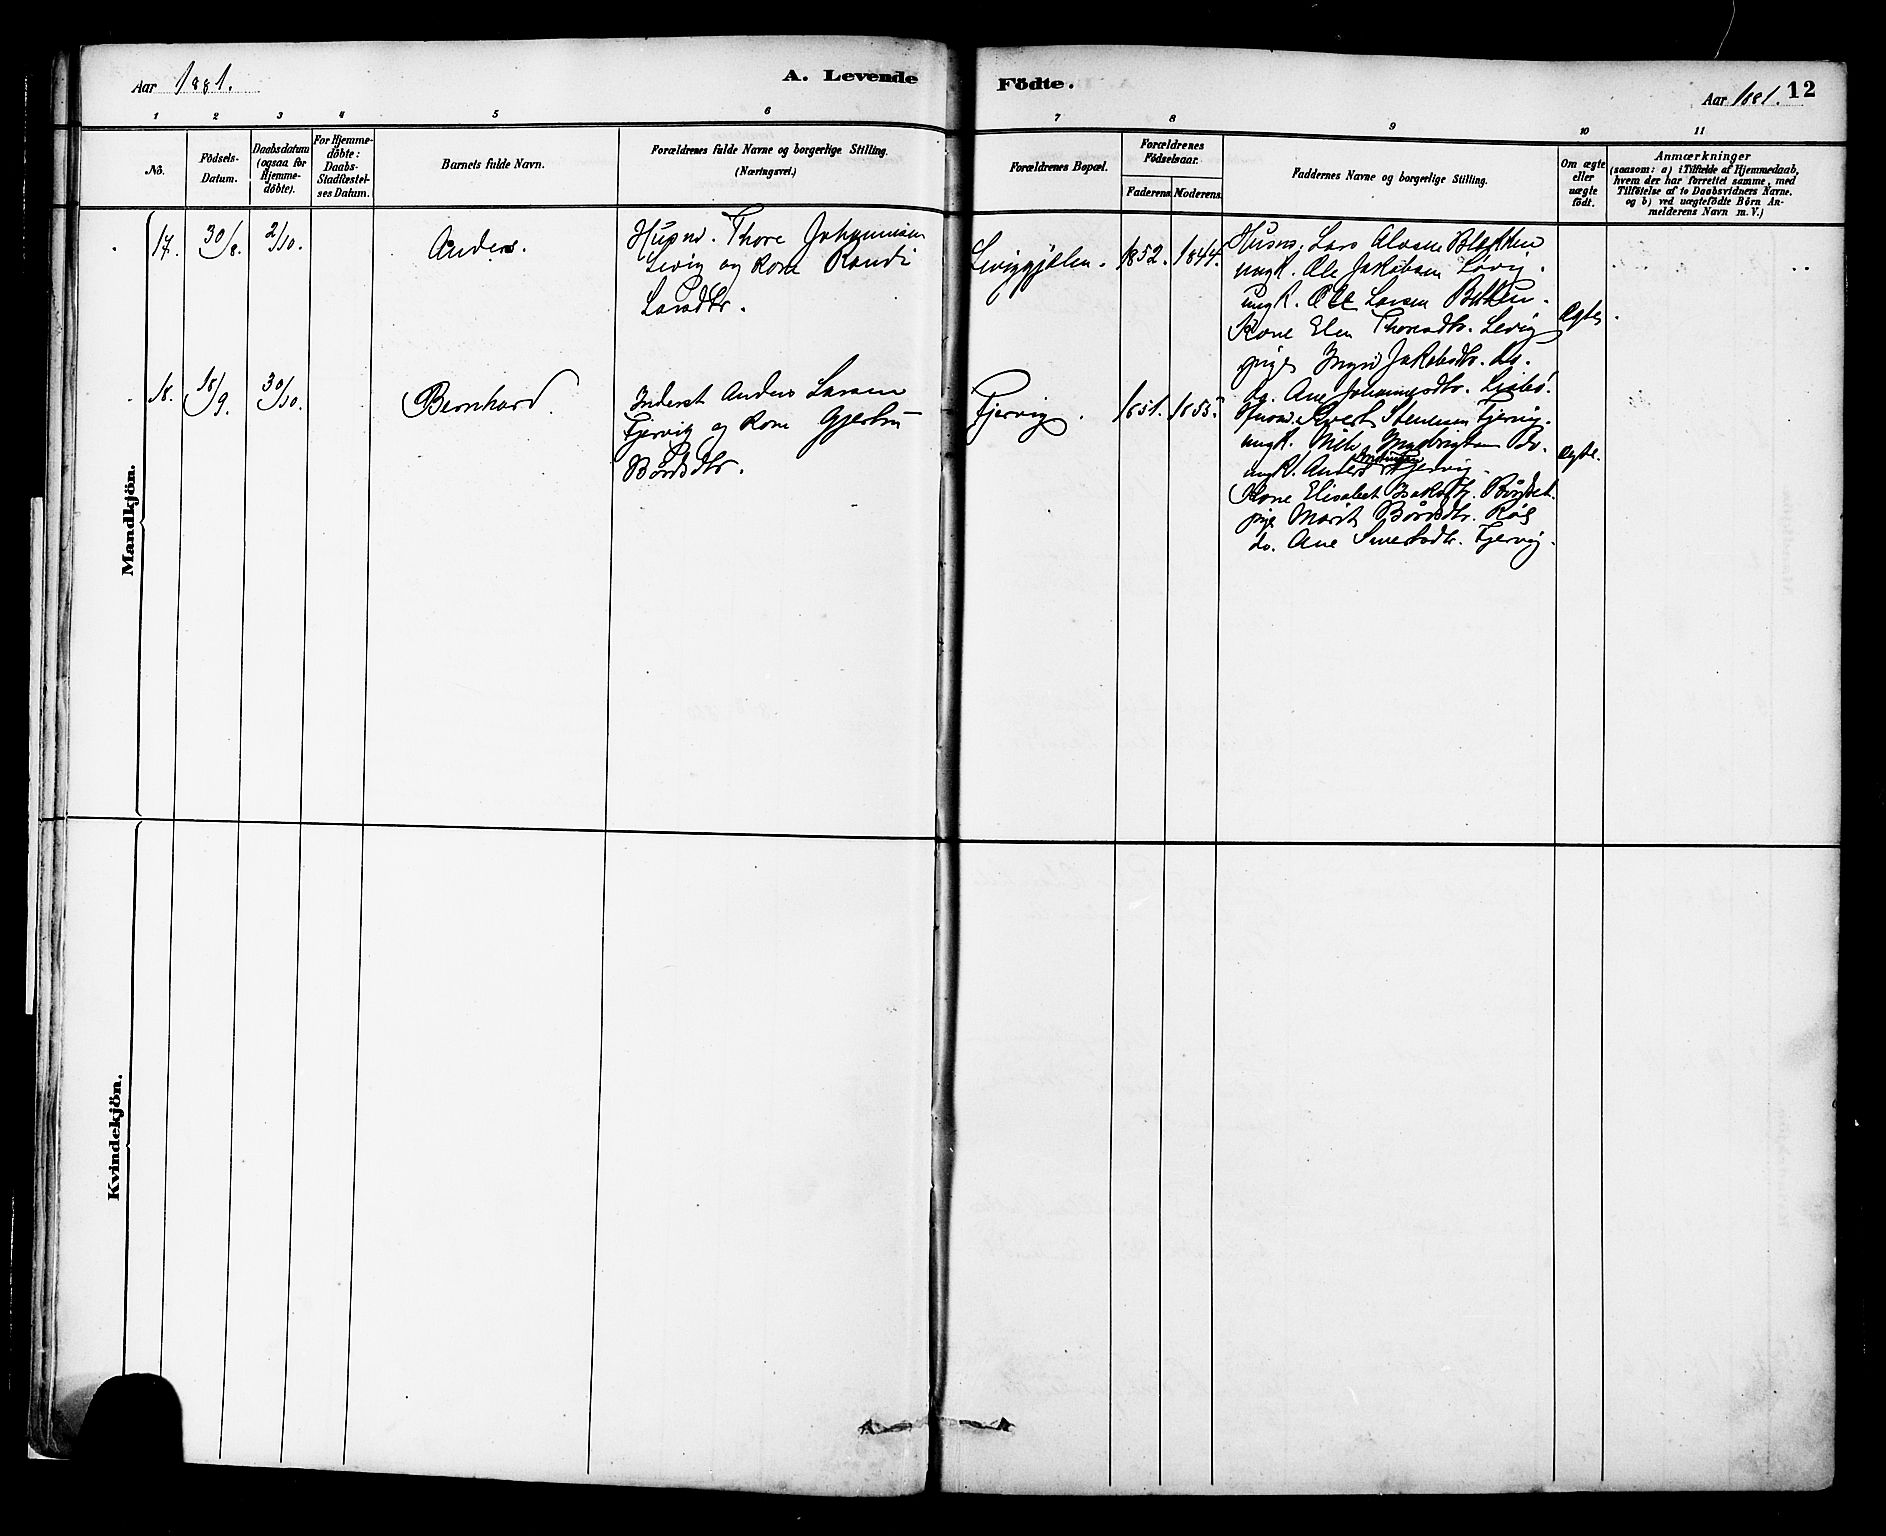 Aar 1881.
A. Levende
Födte.
Aar 1881. 12
1 2 3 4 5 6 7 8 9 10 11
No.
Födsels-
Datum.
Daabsdatum
(ogsaa for
Hjemme-
döbte).
For Hjemme-
döbte:
Daabs-
Stadfæstel-
ses Datum.
Barnets fulde Navn.
Forældrenes fulde Navne og borgerlige Stilling.
(Næringsvei.)
Forældrenes Bopæl.
Forældrenes
Födselsaar.
Faderens. Moderens.
Faddernes Navne og borgerlige Stilling.
Om ægte
eller
uægte
födt.
Anmærkninger
(saasom: a) i Tilfælde af Hjemmedaab,
hvem der har forrettet samme, med
Tilföielse af to Daabsvidners Navne.
og b) ved uægtefödte Börn An-
melderens Navn m. V.)
Mandkjön.
17. 30/8. 2/10. Anders.
Husmd. Thore Johannesen
Levig og Kone Randi
Larsdtr.
Leviggjælen. 1852. 1844.
Husm. Lars Olsen Blekken
ungk. Ole Jakobsen Løvig.
ungk. Ole Larsen Bækken.
Kone Elen Thoresdtr. Levig
pige Ingri Jakobsdtr. do.
do. Ane Johannesdtr. Liabø.
Ægte.
18. 18/9. 30/10. Bernhard.
Inderst Anders Larsen
Fjervig og Kone Gjertru
Bårdsdtr.
Fjervig. 1851. 1855.
Husm. Sivert Stenesen Fjervig.
ungk. Nils Ingebrigtsen do.
ungk. Anders Fjervig.
Kone Elisabet Isaksdtr. Bårdset.
pige Marit Bårdsdtr. Røe
do. Ane Sivertsdtr. Fjervig.
Ægte.
Kvindekjön.